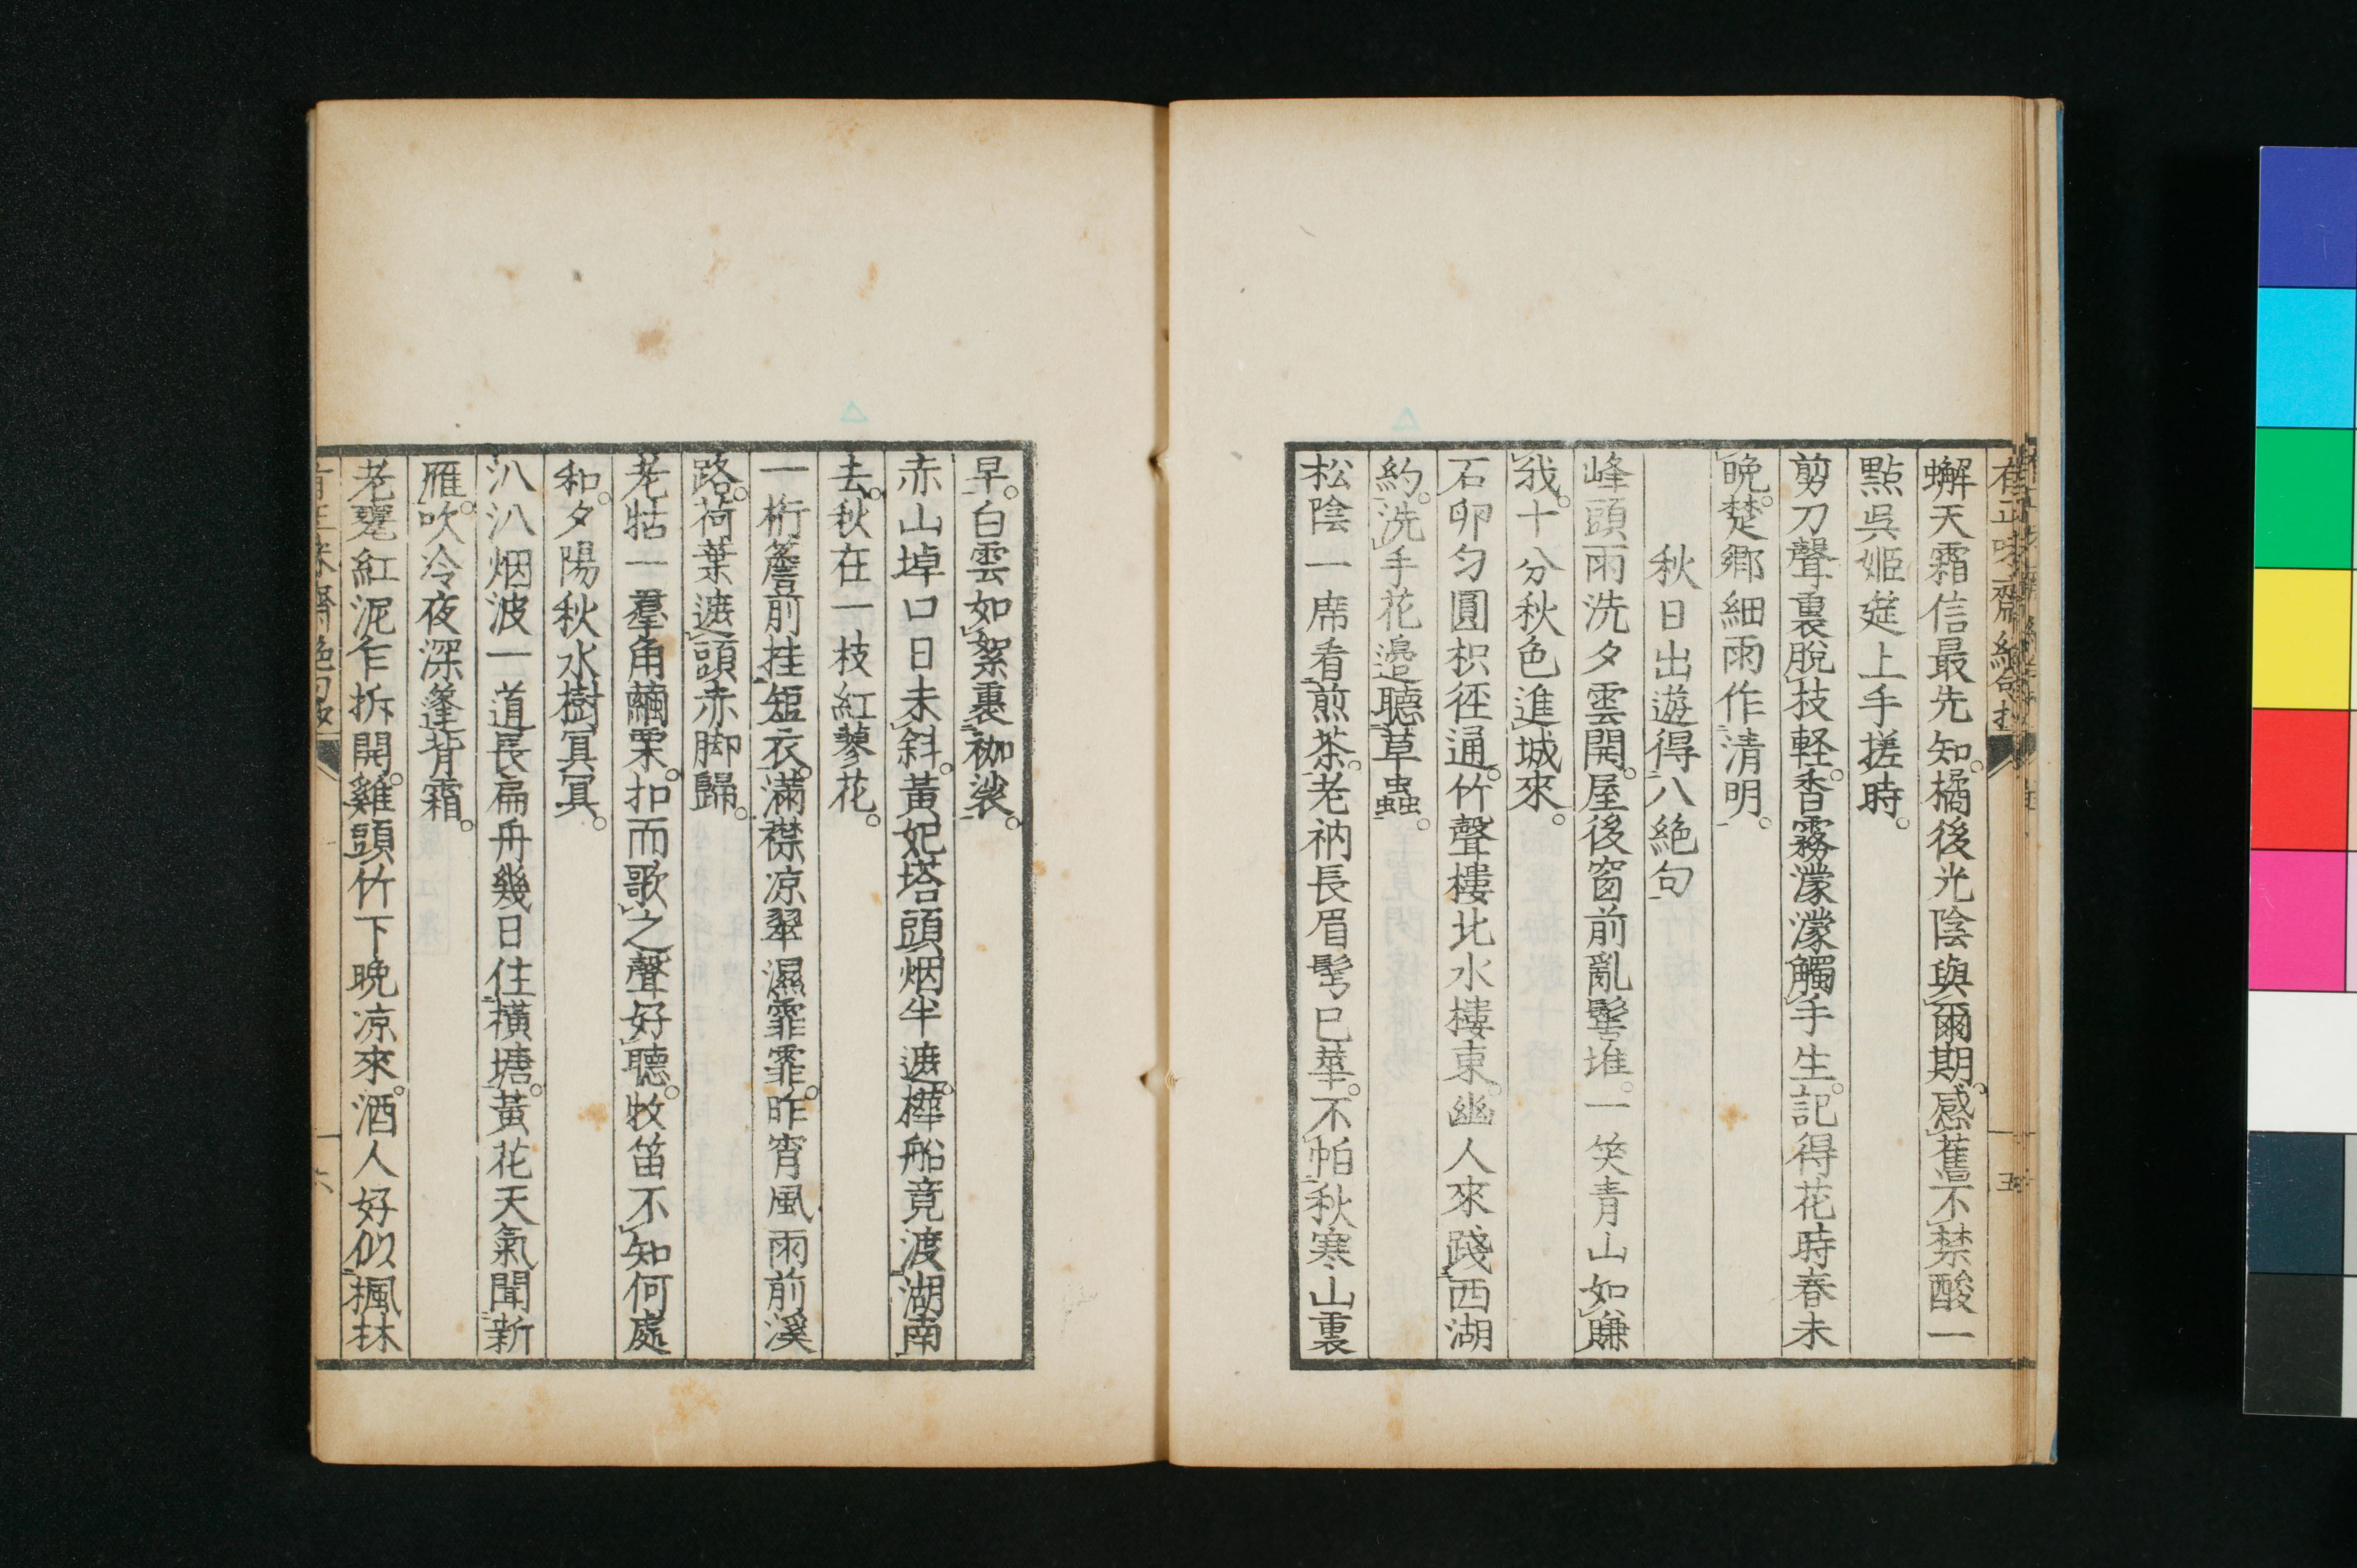 有正味齋絕句抄
五
蠏天霜信最先知。橘後光陰與爾期。感舊不禁酸一
點吳姬筵上手搓時。
剪刀聲裏脫枝輕。香霧濛濛觸手生。記得花時春未
晩。楚鄉細雨作清明。
秋日出遊得八絕句
峰頭雨洗夕雲開。屋後窗前亂髻堆。一笑青山如賺
我。十分秋色進城來。
石卵勻圓枳徑通。竹聲樓北水樓東。幽人來踐西湖
約。洗手花邊聽草蟲。
松陰一席看煎茶。老衲長眉髩已華。不怕秋寒山裏
早。白雲如絮裹袈裟。
赤山埠口日未斜。黃妃塔頭烟半遮。樺船竟渡湖南
去。秋在一枝紅蓼花。
一桁簷前挂短衣。滿襟凉翠濕霏霏。昨宵風雨前溪
路。荷葉遮頭赤脚歸。
老牯一羣角繭栗。扣而歌之聲好聽。牧笛不知何處
和。夕陽秋水樹冥冥。
汃汃烟波一道長。扁舟幾日住橫塘。黃花天氣聞新
雁。吹冷夜深篷背霜。
老甕紅泥乍拆開。雞頭竹下晩凉來。酒人好似楓林